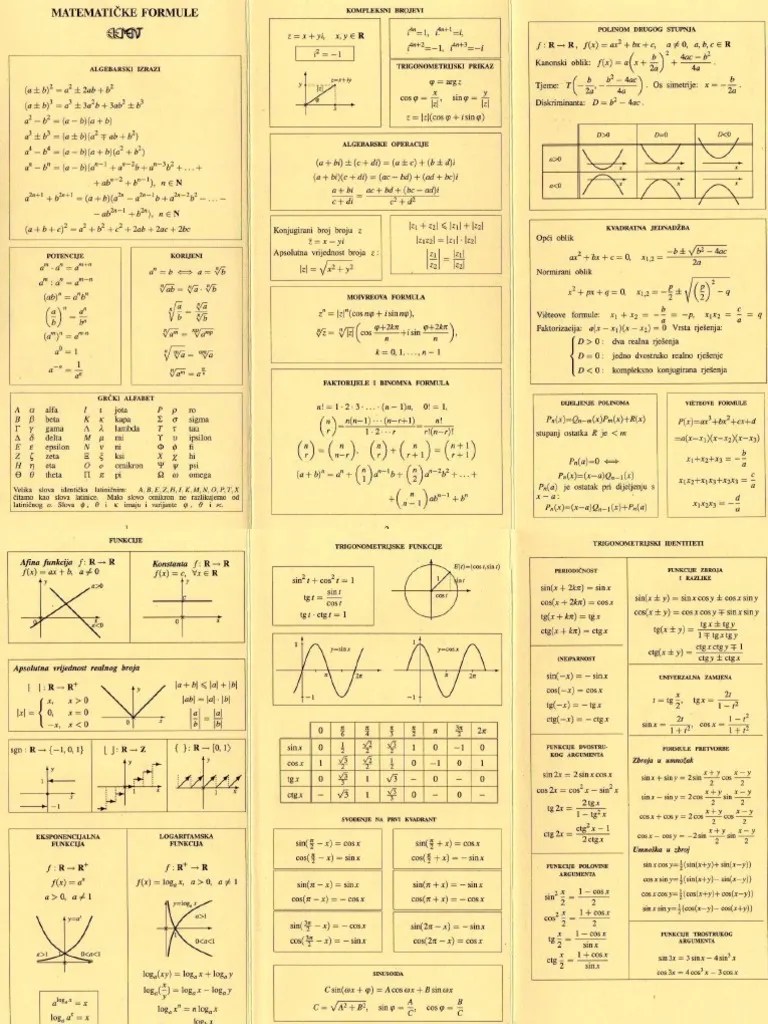 MATEMATIČKE FORMULE
ELEMENT
ALGEBARSKI IZRAZI
(a ± b)² = a² ± 2ab + b²
(a ± b)³ = a³ ± 3a²b + 3ab² ± b³
a² − b² = (a − b)(a + b)
a³ ± b³ = (a ± b)(a² ∓ ab + b²)
a⁴ − b⁴ = (a − b)(a + b)(a² + b²)
aⁿ − bⁿ = (a − b)(aⁿ⁻¹ + aⁿ⁻²b + aⁿ⁻³b² + … +
+ abⁿ⁻² + bⁿ⁻¹), n ∈ N
a²ⁿ⁺¹ + b²ⁿ⁺¹ = (a + b)(a²ⁿ − a²ⁿ⁻¹b + a²ⁿ⁻²b² − … −
− ab²ⁿ⁻¹ + b²ⁿ), n ∈ N
(a + b + c)² = a² + b² + c² + 2ab + 2ac + 2bc
POTENCIJE
aᵐ · aⁿ = aᵐ⁺ⁿ
aᵐ : aⁿ = aᵐ⁻ⁿ
(ab)ⁿ = aⁿbⁿ
(a/b)ⁿ = aⁿ/bⁿ
(aᵐ)ⁿ = aᵐⁿ
a⁰ = 1
a⁻ⁿ = 1/aⁿ
KORIJENI
aⁿ = b ⟺ a = ⁿ√b
ⁿ√ab = ⁿ√a · ⁿ√b
ⁿ√(a/b) = ⁿ√a / ⁿ√b
GRČKI ALFABET
Α α alfa Ι ι jota Ρ ρ ro
Β β beta Κ κ kapa Σ σ sigma
Γ γ gama Λ λ lambda Τ τ tau
Δ δ delta Μ μ mi Υ υ ipsilon
Ε ε epsilon Ν ν ni Φ φ fi
Ζ ζ zeta Ξ ξ ksi Χ χ hi
Η η eta Ο ο omikron Ψ ψ psi
Θ θ theta Π π pi Ω ω omega
Velika slova identična latiničnim: A, B, E, Z, H, I, K, M, N, O, P, T, X
čitamo kao slova latinice. Malo slovo omikron ne razlikujemo od
latiničnog o. Slova φ, θ i κ imaju i varijante
KOMPLEKSNI BROJEVI
z = x + yi, x, y ∈ R
i² = −1
i⁴ⁿ=1, i⁴ⁿ⁺¹=i,
i⁴ⁿ⁺²=−1, i⁴ⁿ⁺³=−i
z=x+iy
TRIGONOMETRIJSKI PRIKAZ
φ = arg z
cos φ = x/|z|, sin φ = y/|z|
z = |z|(cos φ + i sin φ)
ALGEBARSKE OPERACIJE
(a + bi) ± (c + di) = (a ± c) + (b ± d)i
(a + bi)(c + di) = (ac − bd) + (ad + bc)i
(a + bi)/(c + di) = (ac + bd + (bc − ad)i)/(c² + d²)
Konjugirani broj broja z
z̄ = x − yi
Apsolutna vrijednost broja z :
|z| = √(x² + y²)
|z₁ + z₂| ⩽ |z₁| + |z₂|
|z₁z₂| = |z₁| · |z₂|
|z₁/z₂| = |z₁|/|z₂|
MOIVREOVA FORMULA
zⁿ = |z|ⁿ(cos nφ + i sin nφ),
ⁿ√z = ⁿ√|z| (cos (φ+2kπ)/n + i sin (φ+2kπ)/n),
k = 0, 1, …, n − 1
FAKTORIJELE I BINOMNA FORMULA
n! = 1 · 2 · 3 · … · (n − 1)n, 0! = 1,
(n r) = n(n−1)···(n−r+1)/(1·2···r) = n!/(r!(n−r)!)
(n r) = (n n−r), (n r) + (n r+1) = (n+1 r+1)
(a + b)ⁿ = aⁿ + (n 1)aⁿ⁻¹b + (n 2)aⁿ⁻²b² + … +
+ (n n−1)abⁿ⁻¹ + bⁿ
POLINOM DRUGOG STUPNJA
f : R → R, f(x) = ax² + bx + c, a ≠ 0, a, b, c ∈ R
Kanonski oblik: f(x) = a(x + b/2a)² + (4ac − b²)/4a
Tjeme: T(−b/2a, −(b² − 4ac)/4a). Os simetrije: x = −b/2a.
Diskriminanta: D = b² − 4ac.
D>0 D=0 D<0
a>0
a<0
KVADRATNA JEDNADŽBA
Opći oblik
ax² + bx + c = 0, x₁,₂ = (−b ± √(b² − 4ac))/2a
Normirani oblik
x² + px + q = 0, x₁,₂ = −p/2 ± √((p/2)² − q)
Vièteove formule: x₁ + x₂ = −b/a = −p, x₁x₂ = c/a = q
Faktorizacija: a(x − x₁)(x − x₂) = 0 Vrsta rješenja:
D > 0 : dva realna rješenja
D = 0 : jedno dvostruko realno rješenje
D < 0 : kompleksno konjugirana rješenja
DIJELJENJE POLINOMA
Pₙ(x)=Qₙ₋ₘ(x)Pₘ(x)+R(x)
stupanj ostatka R je < m
Pₙ(a)=0 ⟺
Pₙ(x)=(x−a)Qₙ₋₁(x)
Pₙ(a) je ostatak pri dijeljenju s
x − a :
Pₙ(x)=(x−a)Qₙ₋₁(x)+Pₙ(a)
VIÈTEOVE FORMULE
P(x)=ax³+bx²+cx+d
=a(x−x₁)(x−x₂)(x−x₃)
x₁+x₂+x₃ = −b/a
x₁x₂+x₁x₃+x₂x₃ = c/a
x₁x₂x₃ = −d/a
FUNKCIJE
Afina funkcija f : R → R
f(x) = ax + b, a ≠ 0
a>0
a<0
Konstanta f : R → R
f(x) = c, ∀x ∈ R
Apsolutna vrijednost realnog broja
| | : R → R⁺
|x| = { x, x > 0
0, x = 0
−x, x < 0
|a + b| ⩽ |a| + |b|
|ab| = |a| · |b|
|a/b| = |a|/|b|
sgn : R → {−1, 0, 1}
⌊ ⌋ : R → Z
{ } : R → [0, 1)
EKSPONENCIJALNA
FUNKCIJA
f : R → R⁺
f(x) = aˣ
a > 0, a ≠ 1
y=aˣ
a>1 0<a<1
a^(logₐ x) = x
logₐ aˣ = x
LOGARITAMSKA
FUNKCIJA
f : R⁺ → R
f(x) = logₐ x, a > 0, a ≠ 1
y=logₐx
a>1
0<a<1
logₐ(xy) = logₐ x + logₐ y
logₐ(x/y) = logₐ x − logₐ y
logₐ xⁿ = n logₐ x
TRIGONOMETRIJSKE FUNKCIJE
sin² t + cos² t = 1
tg t = sin t/cos t
tg t · ctg t = 1
E(t)=(cos t, sin t)
sin t
cos t
y=sin x
y=cos x
0 π/6 π/4 π/3 π/2 π 3π/2 2π
sin x 0 1/2 √2/2 √3/2 1 0 −1 0
cos x 1 √3/2 √2/2 1/2 0 −1 0 1
tg x 0 √3/3 1 √3 − 0 − 0
ctg x − √3 1 √3/3 0 − 0 −
SVOĐENJE NA PRVI KVADRANT
sin(π/2 − x) = cos x
cos(π/2 − x) = sin x
sin(π/2 + x) = cos x
cos(π/2 + x) = − sin x
sin(π − x) = sin x
cos(π − x) = − cos x
sin(π + x) = − sin x
cos(π + x) = − cos x
sin(3π/2 − x) = − cos x
cos(3π/2 − x) = − sin x
sin(2π − x) = − sin x
cos(2π − x) = cos x
SINUSOIDA
C sin(ωx + φ) = A cos ωx + B sin ωx
C = √(A² + B²), sin φ = A/C, cos φ = B/C
TRIGONOMETRIJSKI IDENTITETI
PERIODIČNOST
sin(x + 2kπ) = sin x
cos(x + 2kπ) = cos x
tg(x + kπ) = tg x
ctg(x + kπ) = ctg x
(NE)PARNOST
sin(−x) = − sin x
cos(−x) = cos x
tg(−x) = − tg x
ctg(−x) = − ctg x
FUNKCIJE DVOSTRU-
KOG ARGUMENTA
sin 2x = 2 sin x cos x
cos 2x = cos² x − sin² x
tg 2x = 2 tg x/(1 − tg² x)
ctg 2x = (ctg² x − 1)/(2 ctg x)
FUNKCIJE POLOVINE
ARGUMENTA
sin² x/2 = (1 − cos x)/2
cos² x/2 = (1 + cos x)/2
tg x/2 = (1 − cos x)/sin x
ctg x/2 = (1 + cos x)/sin x
FUNKCIJE ZBROJA
I RAZLIKE
sin(x ± y) = sin x cos y ± cos x sin y
cos(x ± y) = cos x cos y ∓ sin x sin y
tg(x ± y) = (tg x ± tg y)/(1 ∓ tg x tg y)
ctg(x ± y) = (ctg x ctg y ∓ 1)/(ctg y ± ctg x)
UNIVERZALNA ZAMJENA
t = tg x/2, tg x = 2t/(1 − t²)
sin x = 2t/(1 + t²), cos x = (1 − t²)/(1 + t²)
FORMULE PRETVORBE
Zbroja u umnožak
sin x + sin y = 2 sin (x+y)/2 cos (x−y)/2
sin x − sin y = 2 cos (x+y)/2 sin (x−y)/2
cos x + cos y = 2 cos (x+y)/2 cos (x−y)/2
cos x − cos y = −2 sin (x+y)/2 sin (x−y)/2
Umnoška u zbroj
sin x cos y=½(sin(x+y)+ sin(x−y))
cos x sin y=½(sin(x+y)− sin(x−y))
cos x cos y=½(cos(x+y)+ cos(x−y))
sin x sin y=½(cos(x−y)− cos(x+y))
FUNKCIJE TROSTRUKOG
ARGUMENTA
sin 3x = 3 sin x − 4 sin³ x
cos 3x = 4 cos³ x − 3 cos x